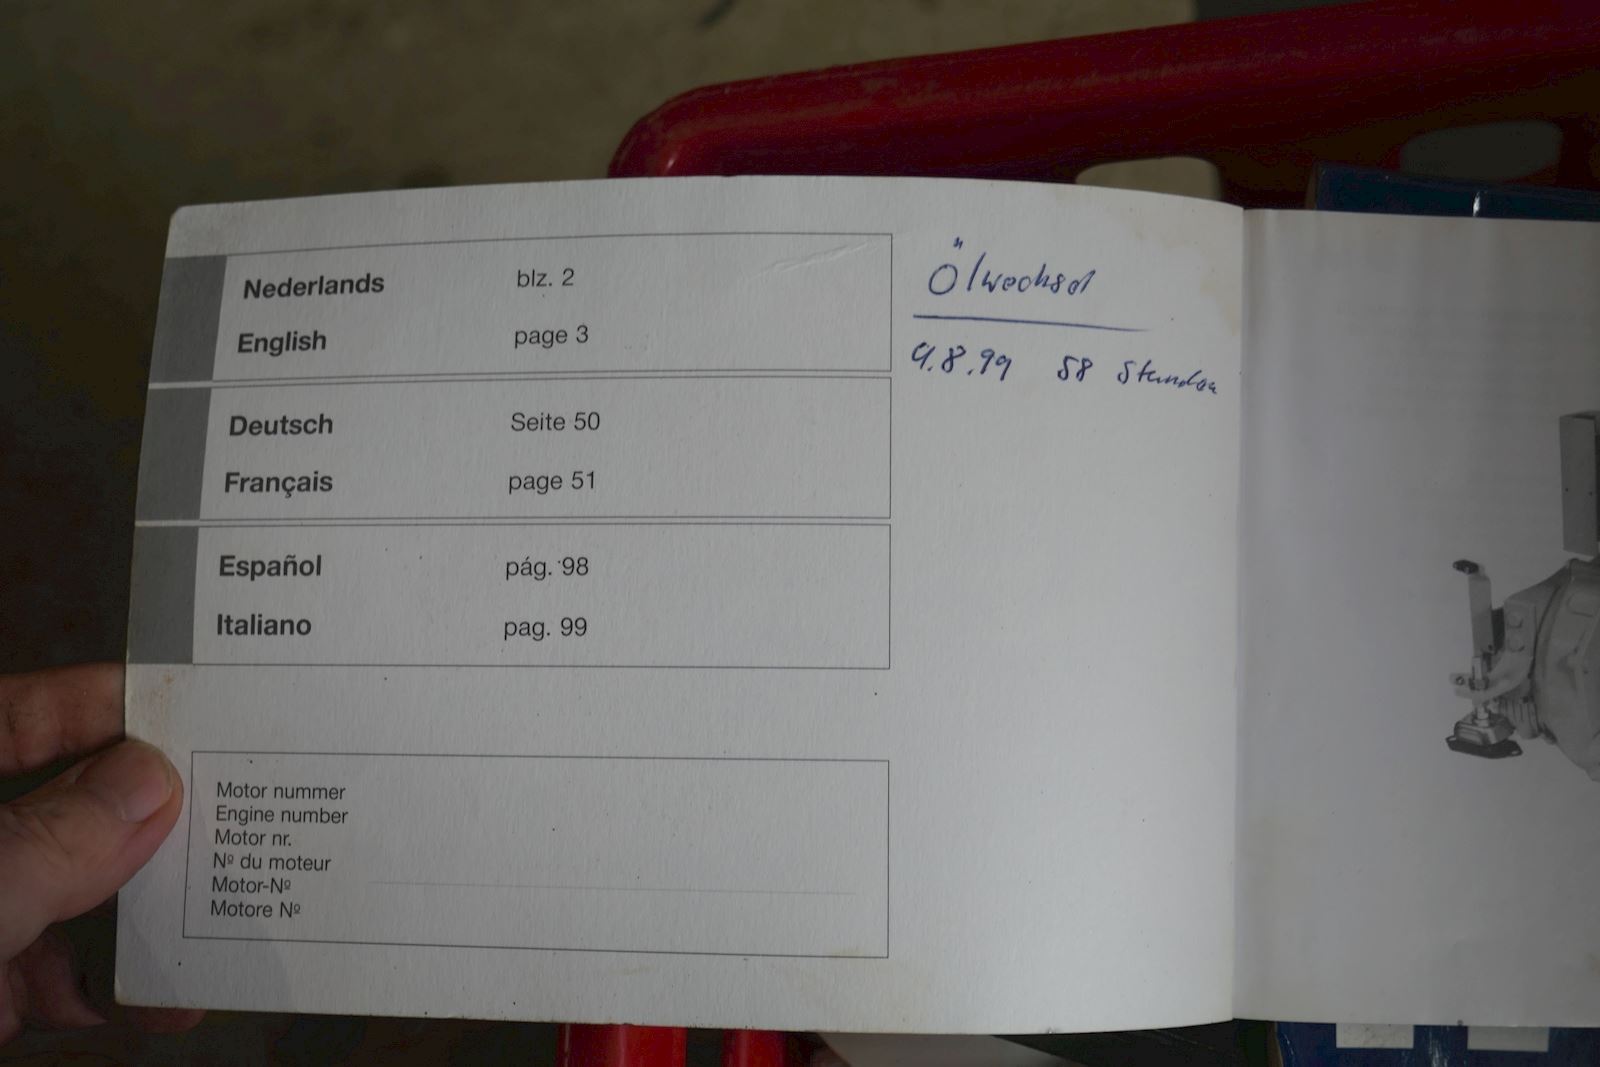 Nederlands blz. 2
English page 3
Deutsch Seite 50
Français page 51
Español pág. 98
Italiano pag. 99
Motor nummer
Engine number
Motor nr.
Nº du moteur
Motor-Nº
Motore Nº
Ölwechsel
9.8.99 58 Stunden